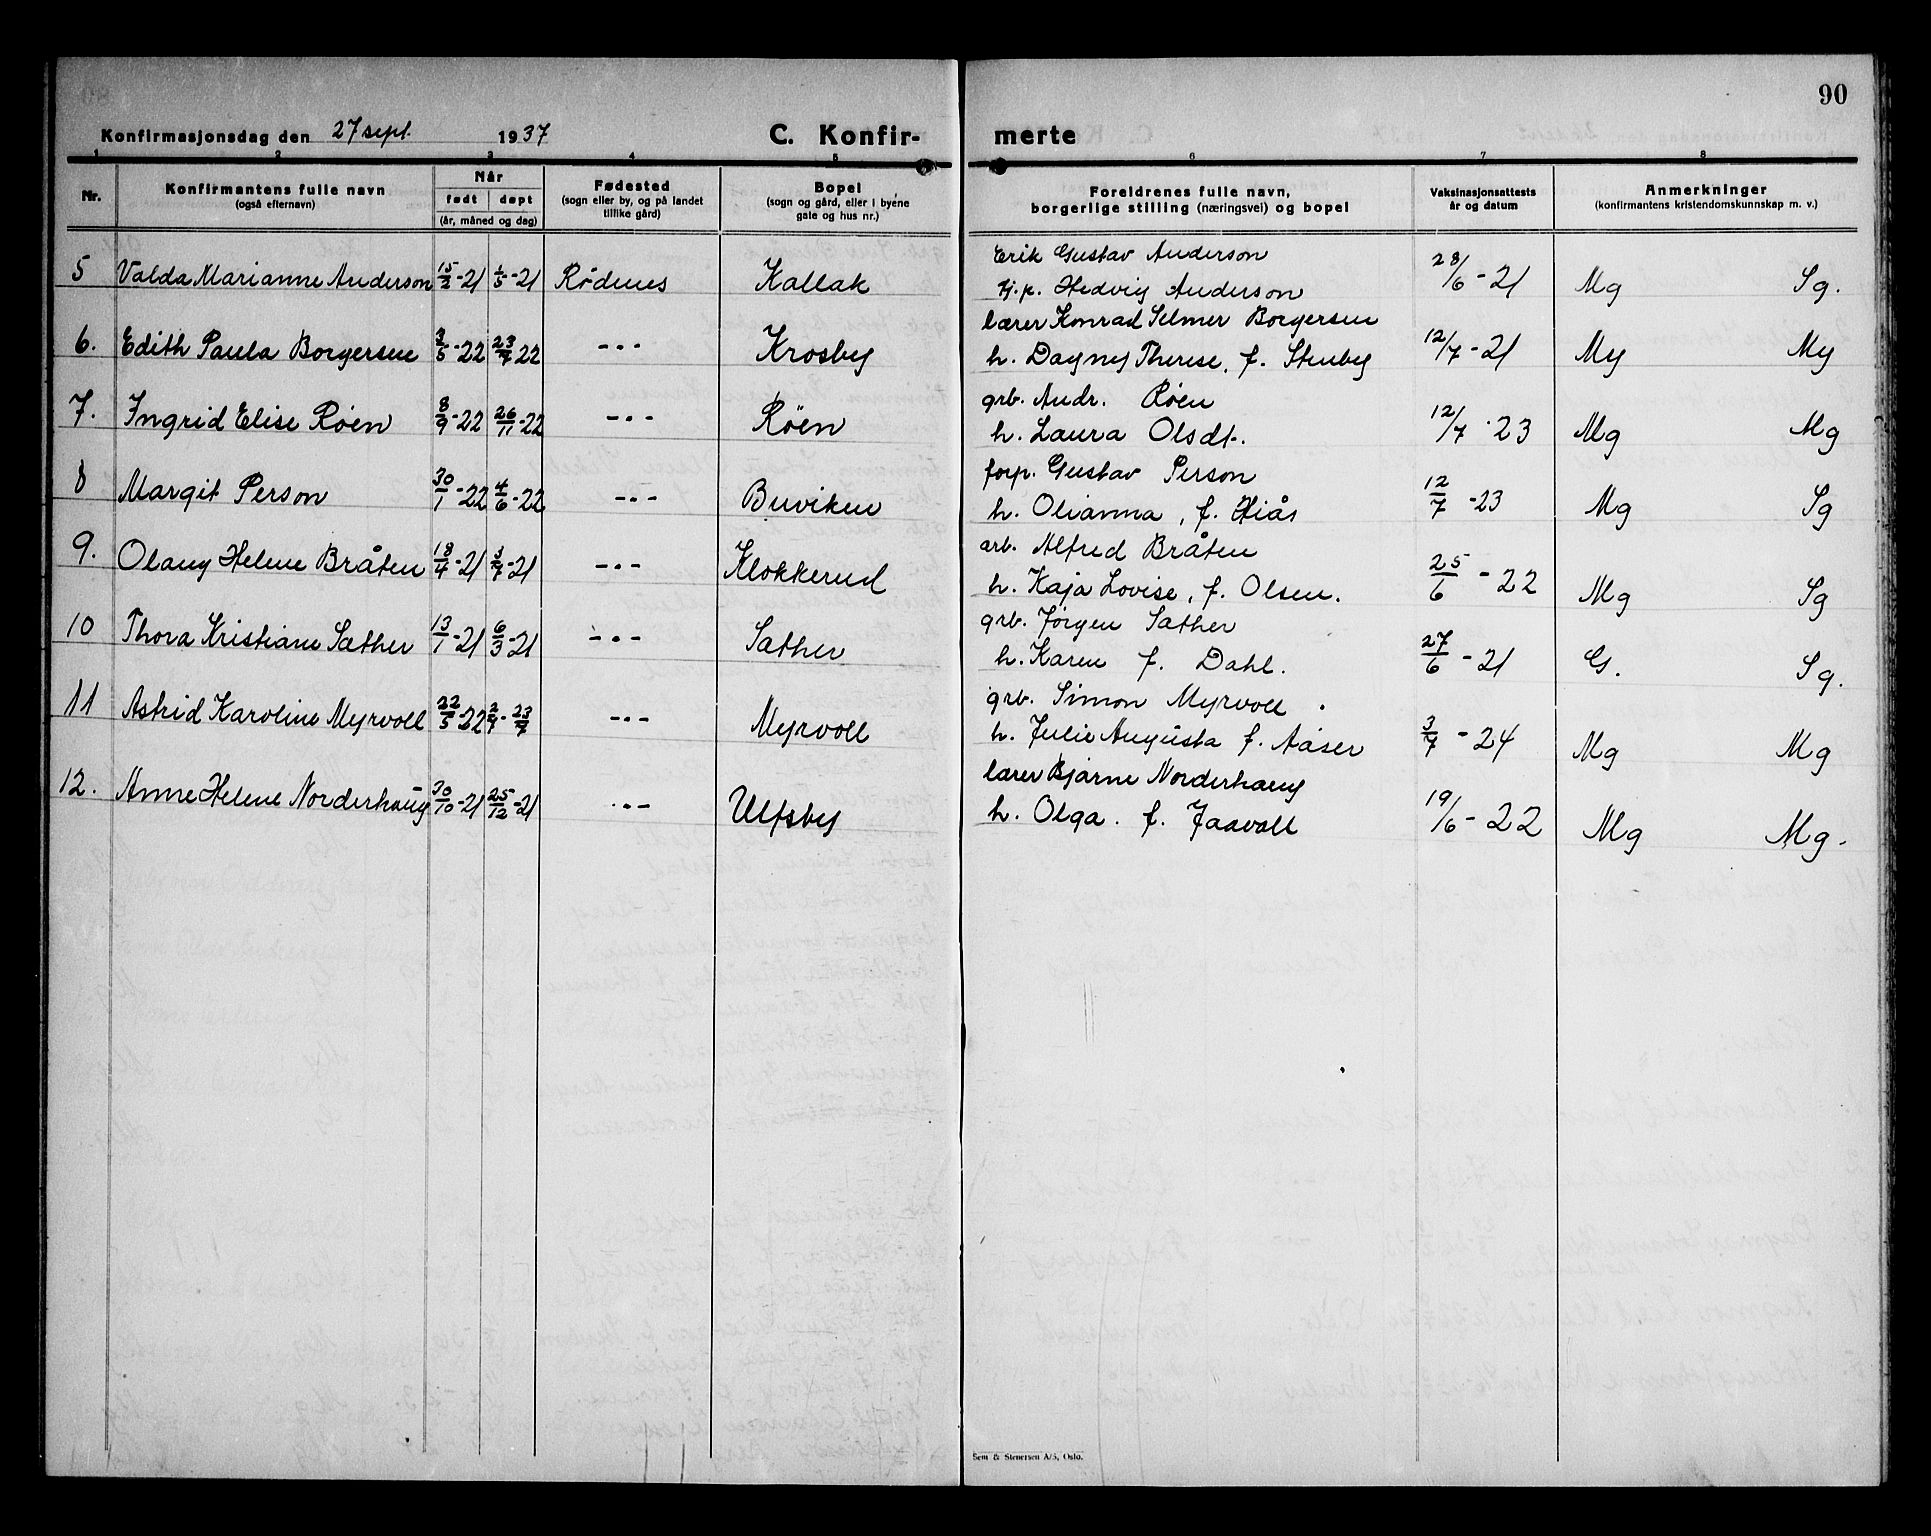 90
Konfirmasjonsdag den 27 sept. 1937 C. Konfir- merte
1 2 3 4 5 6 7 8
Nr. Konfirmantens fulle navn (også efternavn) Når født døpt (år, måned og dag) Fødested (sogn eller by, og på landet tillike gård) Bopel (sogn og gård, eller i byene gate og hus nr.) Foreldrenes fulle navn, borgerlige stilling (næringsvei) og bopel Vaksinasjonsattests år og datum Anmerkninger (konfirmantens kristendomskunnskap m. v.)
Erik Gustav Anderson
5 Valda Marianne Anderson 15/2-21 1/5-21 Rødenes Kallak Hedvig Anderson 28/6-21 Mg Sg.
lærer Konrad Selmer Borgersen
6. Edith Paula Borgersen 3/5-22 23/7 22 -"- Krosby h. Dagny Therese, f. Stenby 12/7-21 Mg Mg
grb. Andr. Røen
7. Ingrid Elise Røen 8/9-22 26/11-22 -"- Røen h. Laura Olsdt. 12/7-23 Mg Mg
forp. Gustav Person
8 Margit Person 30/1-22 4/6-22 -"- Buviken h. Olianna, f. Hiås 12/7-23 Mg Sg
arb. Alfred Bråten
9. Olaug Helene Bråten 18/4-21 3/7-21 -"- Klokkerud h. Kaja Lovise, f. Olsen. 25/6-22 Mg Sg
grb. Jørgen Sæther
10 Thora Kristiane Sæther 13/1-21 6/3-21 -"- Sæther h. Karen f. Dahl. 27/6-21 G. Sg.
grb. Simon Myrvoll
11 Astrid Karoline Myrvoll 22/5-22 -"- Myrvoll h. Julie Augusta f. Aaser 3/7-24 Mg Mg
lærer Bjarne Norderhaug
12. Anne Helene Norderhaug 30/10-21 25/12-21 -"- Ulfsby h. Olga. f. Jaavall 19/6-22 Mg Mg.
Sem & Stenersen A/S, Oslo.